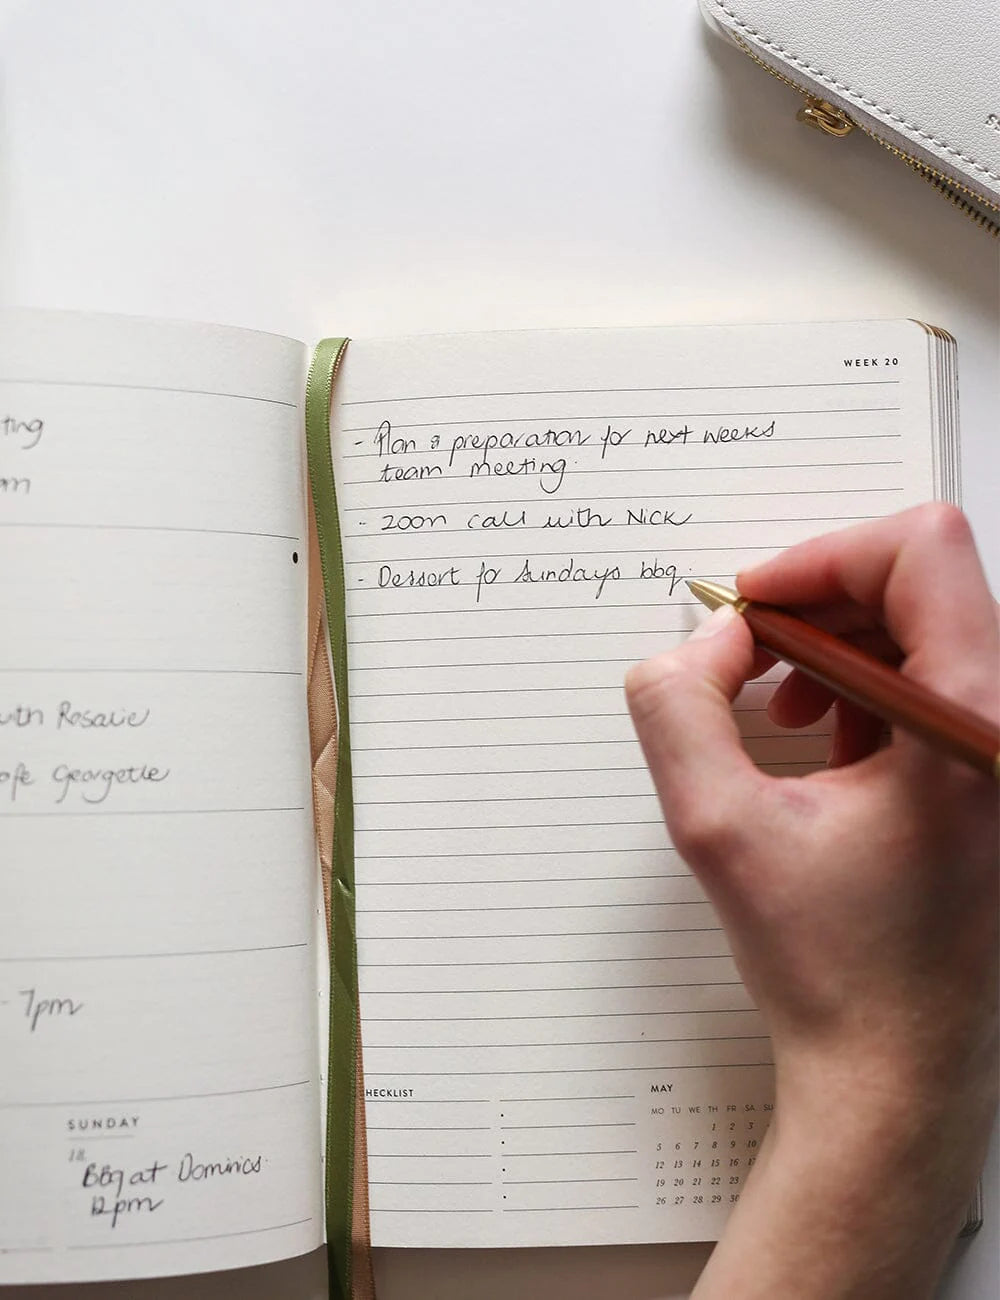 ting
am
with Rosalie
Georgette
- 7pm
SUNDAY
18
Bbq at Dominics.
12pm
WEEK 20
- Plan & preparation for next weeks
team meeting.
- zoom call with Nick
- Dessert for Sundays bbq.
HECKLIST
MAY
MO TU WE TH FR SA SU
1 2 3
5 6 7 8 9 10
12 13 14 15 16
19 20 21 22 23
26 27 28 29 30